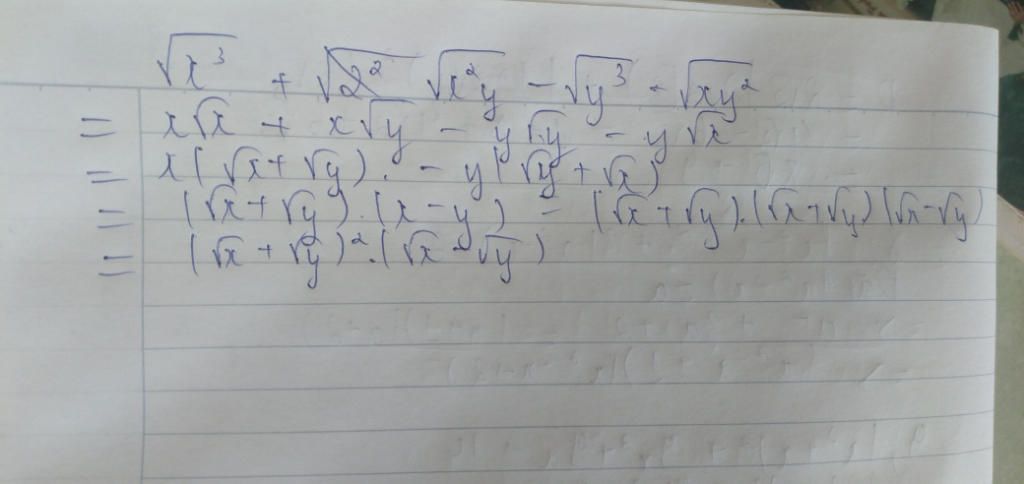 √x³ + √x²y - √y³ - √xy²
= x√x + x√y - y√y - y√x
= x(√x + √y). - y(√y + √x)
= (√x + √y).(x - y) = (√x + √y).(√x + √y)(√x - √y)
= (√x + √y)².(√x - √y)